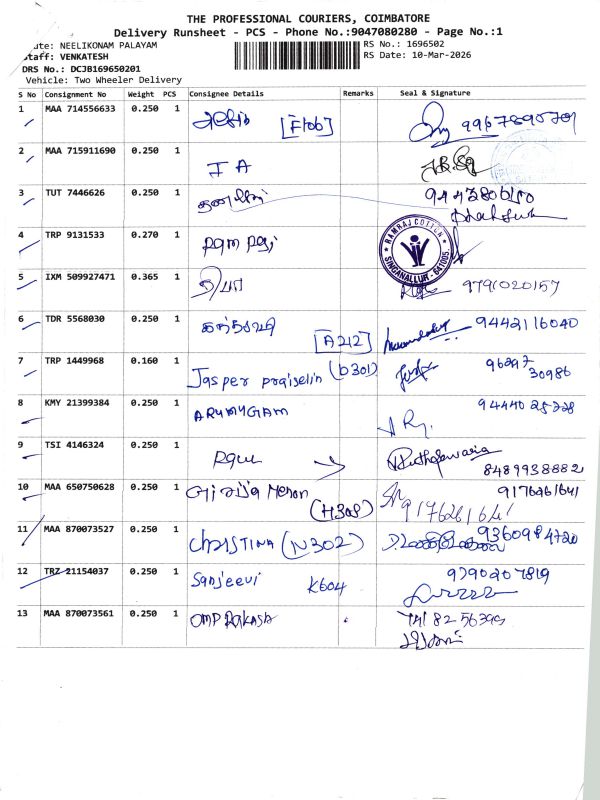 THE PROFESSIONAL COURIERS, COIMBATORE
Delivery Runsheet - PCS - Phone No.:9047080280 - Page No.:1
ute: NEELIKONAM PALAYAM
RS No.: 1696502
taff: VENKATESH
RS Date: 10-Mar-2026
DRS No.: DCJB169650201
Vehicle: Two Wheeler Delivery
S No Consignment No Weight PCS Consignee Details Remarks Seal & Signature
1 MAA 714556633 0.250 1 [F106]
2 MAA 715911690 0.250 1 I A
3 TUT 7446626 0.250 1
4 TRP 9131533 0.270 1
RAMRAJ COTTON
SINGANALLUR - 641005.
5 IXM 509927471 0.365 1 திபா 9791020157
6 TDR 5568030 0.250 1 9442116040
[A212]
7 TRP 1449968 0.160 1 Jasper praiselin (D301) 96297
30986
8 KMY 21399384 0.250 1 ARUMUGAM
9 TSI 4146324 0.250 1
8489938882
10 MAA 650750628 0.250 1 Girija Menon 9176261641
(H308) 9176261641
11 MAA 870073527 0.250 1 CHRISTINA (N302) 9360984720
12 TRZ 21154037 0.250 1 Sanjeevi K604
13 MAA 870073561 0.250 1 OMPRAKASH